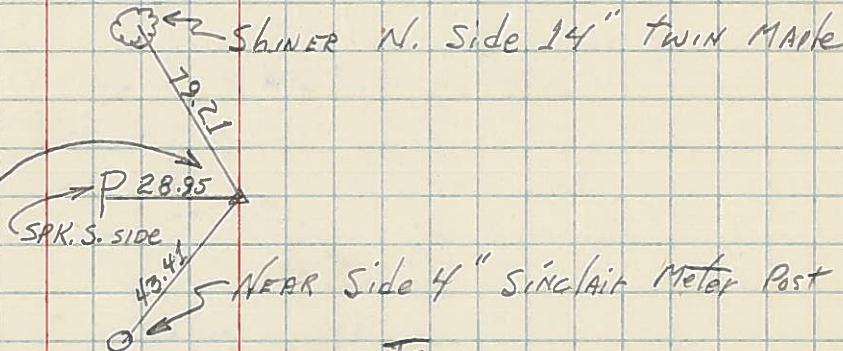 Shiner N. Side 14" Twin Maple
79.21
P 28.95
SPK. S. Side
43.41
Near Side 4" Sinclair Meter Post